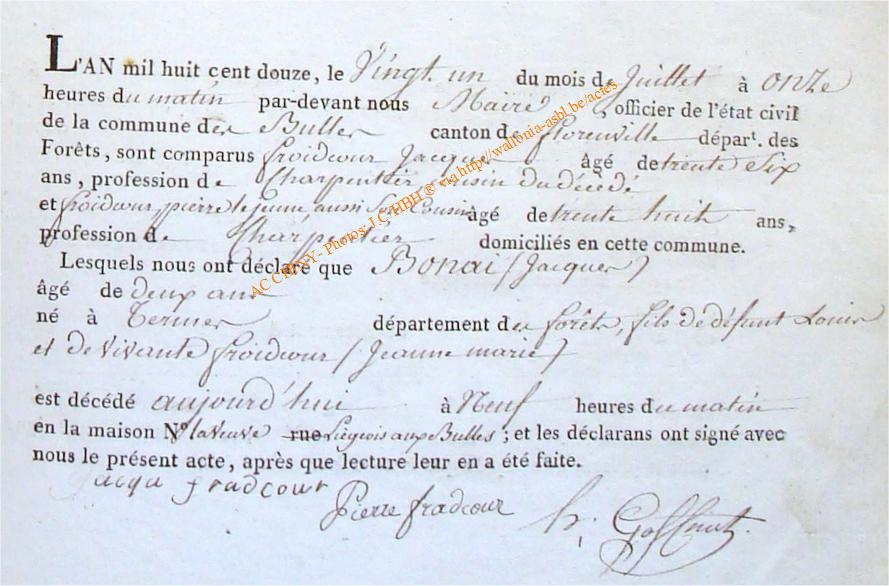 L'AN mil huit cent douze, le Vingt un du mois de Juillet à onze
heures du matin par-devant nous Maire, officier de l'état civil
de la commune des Bulles canton de florenville départ. des
Forêts, sont comparus froidcour Jacques âgé de trente Six
ans, profession de Charpentier cousin du décédé
et froidcour pierre le jeune aussi Son Cousin âgé de trente huit ans,
profession de Charpentier domiciliés en cette commune.
Lesquels nous ont déclaré que Bonai (Jacques)
âgé de deux ans
né à Termes département des forêts, fils de défunt Louis
et de vivante froidcour (Jeanne marie)
est décédé aujourd'hui à Neuf heures du matin
en la maison N° la veuve rue Liégeois aux Bulles; et les déclarans ont signé avec
nous le présent acte, après que lecture leur en a été faite.
Jacque fradcour
Pierre fradcour
AC CHINY- Photos-J.C.HBH @ via http://wallonia-asbl.be/actes